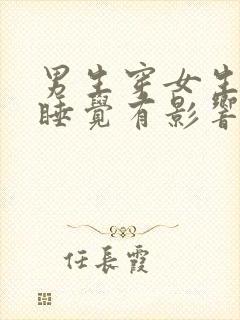 男生穿女生
睡覺有影響
任長霞